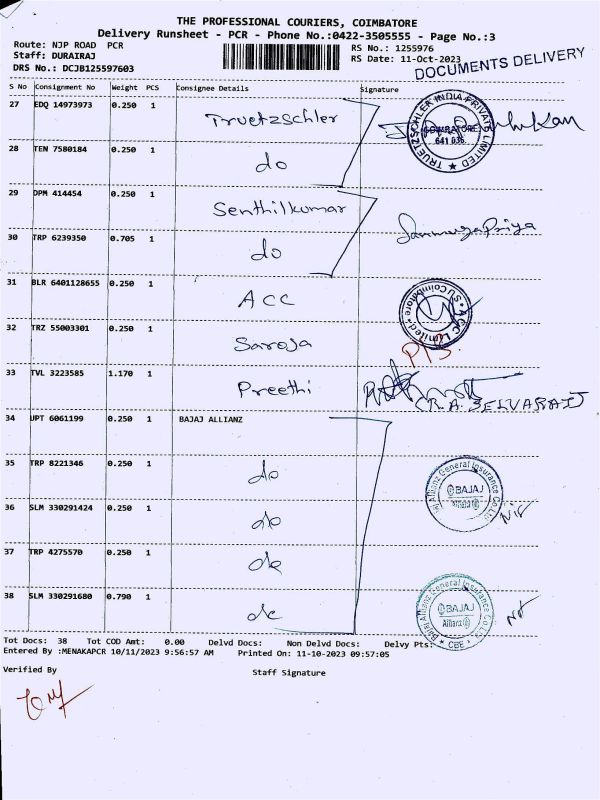 THE PROFESSIONAL COURIERS, COIMBATORE
Delivery Runsheet - PCR - Phone No.:0422-3505555 - Page No.:3
Route: NJP ROAD PCR
Staff: DURAIRAJ
DRS No.: DCJB125597603
RS No.: 1255976
RS Date: 11-Oct-2023
DOCUMENTS DELIVERY
S No Consignment No Weight PCS Consignee Details Signature
27 EDQ 14973973 0.250 1 Truetzschler
TRUETZSCHLER INDIA PRIVATE LIMITED
COIMBATORE
641 036
28 TEN 7580184 0.250 1 do
29 DPM 414454 0.250 1 Senthilkumar
30 TRP 6239350 0.705 1 do
31 BLR 6401128655 0.250 1 ACC
ACC Limited Coimbatore
32 TRZ 55003301 0.250 1 Saroja
33 TVL 3223585 1.170 1 Preethi
CR.A. SELVARAJ
34 UPT 6061199 0.250 1 BAJAJ ALLIANZ
35 TRP 8221346 0.250 1 do
Bajaj Allianz General Insurance Co Ltd
BAJAJ
Allianz
36 SLM 330291424 0.250 1 do
37 TRP 4275570 0.250 1 do
38 SLM 330291680 0.790 1 do
Bajaj Allianz General Insurance Co Ltd
BAJAJ
Allianz
CBE
Tot Docs: 38 Tot COD Amt: 0.00 Delvd Docs: Non Delvd Docs: Delvy Pts:
Entered By :MENAKAPCR 10/11/2023 9:56:57 AM Printed On: 11-10-2023 09:57:05
Verified By
Staff Signature